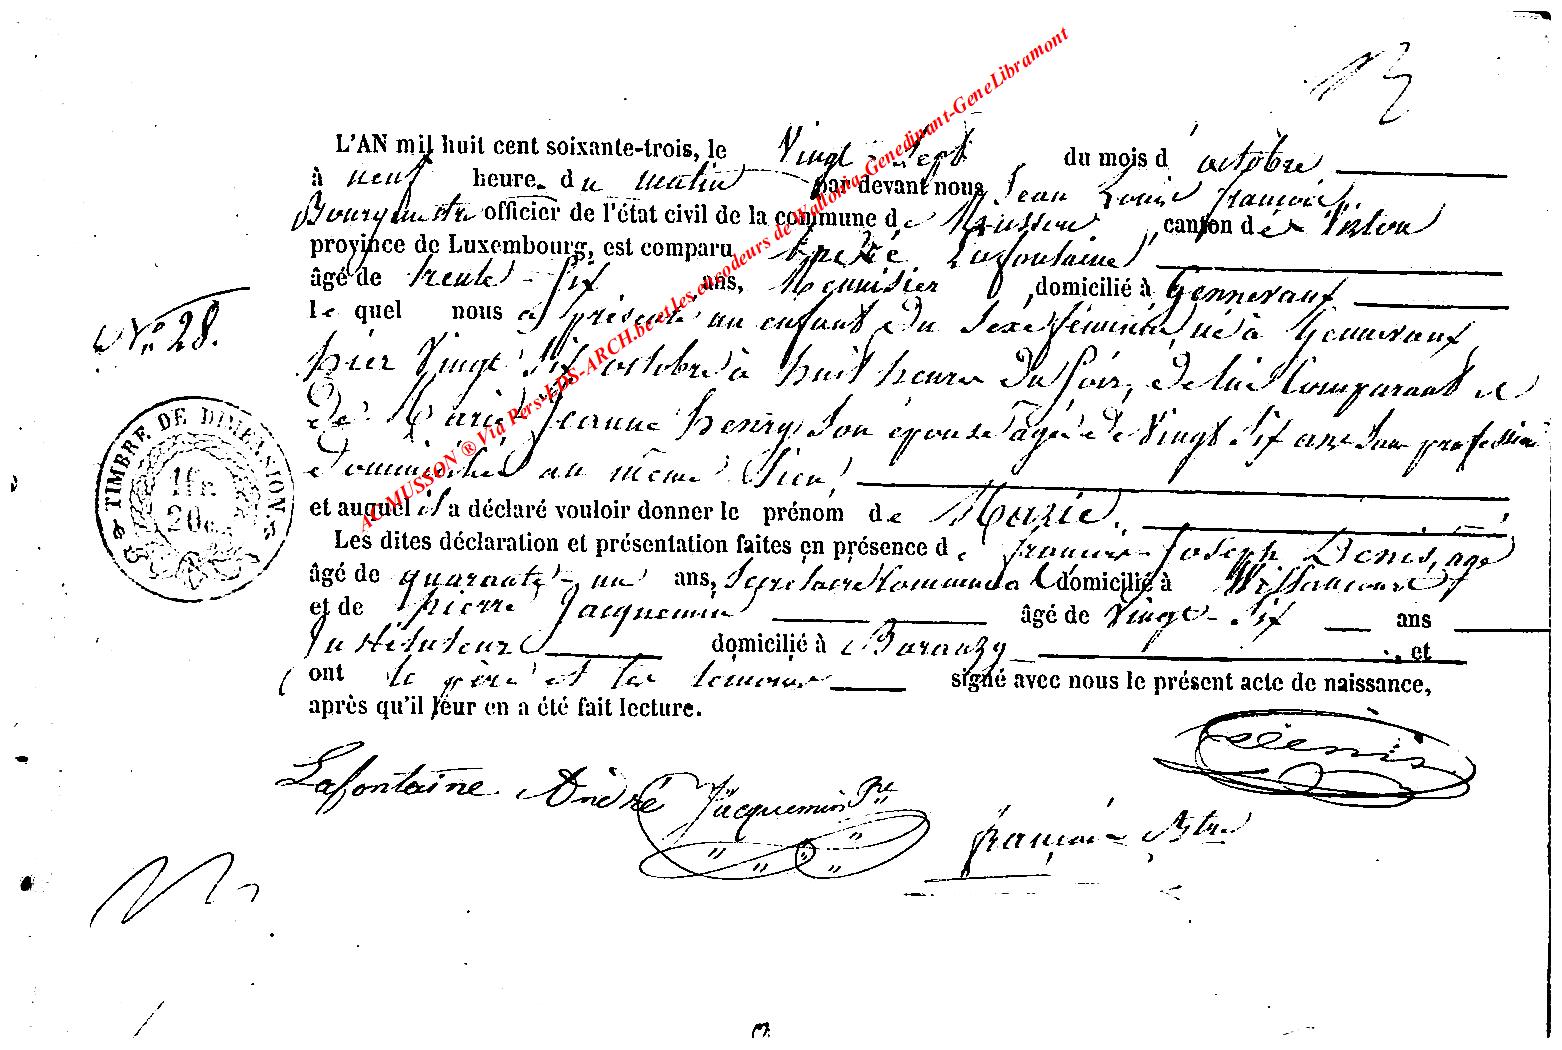 L'AN mil huit cent soixante-trois, le Vingt-Sept du mois d' octobre
à neuf heure du matin par devant nous Jean Louis françois
Bourgmestre officier de l'état civil de la commune de Musson, canton de Virton
province de Luxembourg, est comparu André Lafontaine
âgé de trente-Six ans, Menuisier domicilié à Gennevaux
le quel nous a présenté un enfant du sexe féminin, né à Gennevaux
hier Vingt Six octobre à huit heures du soir, de lui Comparant et
de Marie Jeanne henry son épouse agée de Vingt Six ans sans profession
domiciliée au même lieu
et auquel il a déclaré vouloir donner le prénom de Marie.
Les dites déclaration et présentation faites en présence de françois-Joseph Denis, agé
âgé de quarante-un ans, Secrétaire Communal domicilié à Willancourt
et de pierre Jacquemin âgé de Vingt-Six ans
Instituteur domicilié à Baranzy, et
ont le père et les témoins signé avec nous le présent acte de naissance,
après qu'il leur en a été fait lecture.
No 28.
TIMBRE DE DIMENSION
1 FR.
20 c.
Denis
Lafontaine André Jacquemin Pre
françois Bstre
AC MUSSON ® Via Pers-LDS-ARCH.be et les encodeurs de Wallonia-Genedinant-GeneLibramont